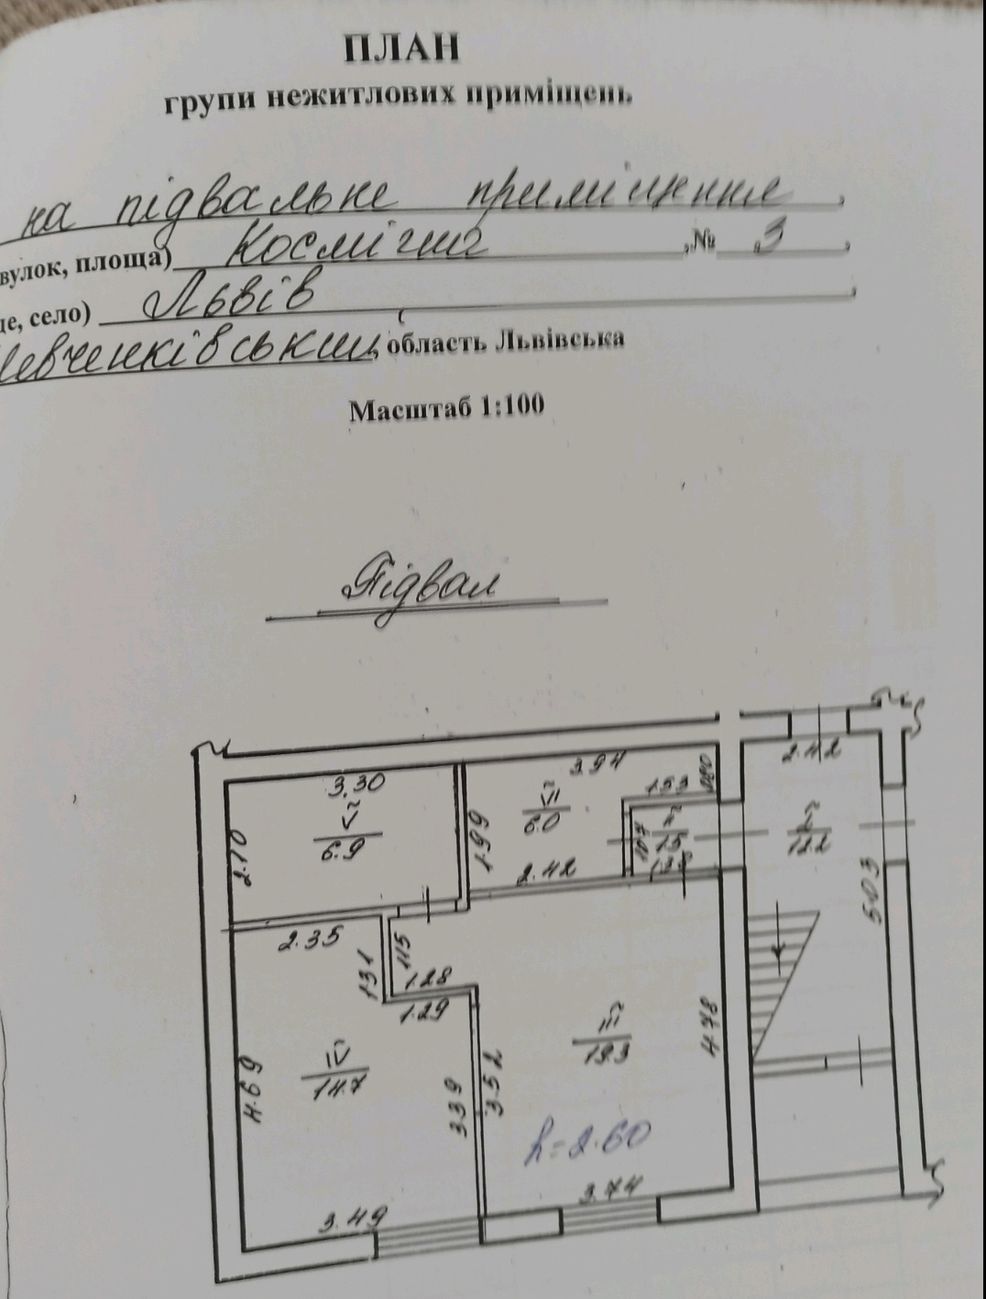 ПЛАН
групи нежитлових приміщень
на підвальне приміщення,
вулок, площа) Космічна, № 3,
це, село) Львів,
Шевченківський, область Львівська
Масштаб 1:100
Підвал
2.42
3.94
3.30
1.53
0.80
V
6.9
VI
6.0
I
12.2
2.10
1.99
1.07
II
1.5
2.42
5.03
2.35
1.31
1.15
1.28
1.29
III
19.3
4.78
IV
14.7
4.69
3.39
3.52
h=2.60
3.74
3.49